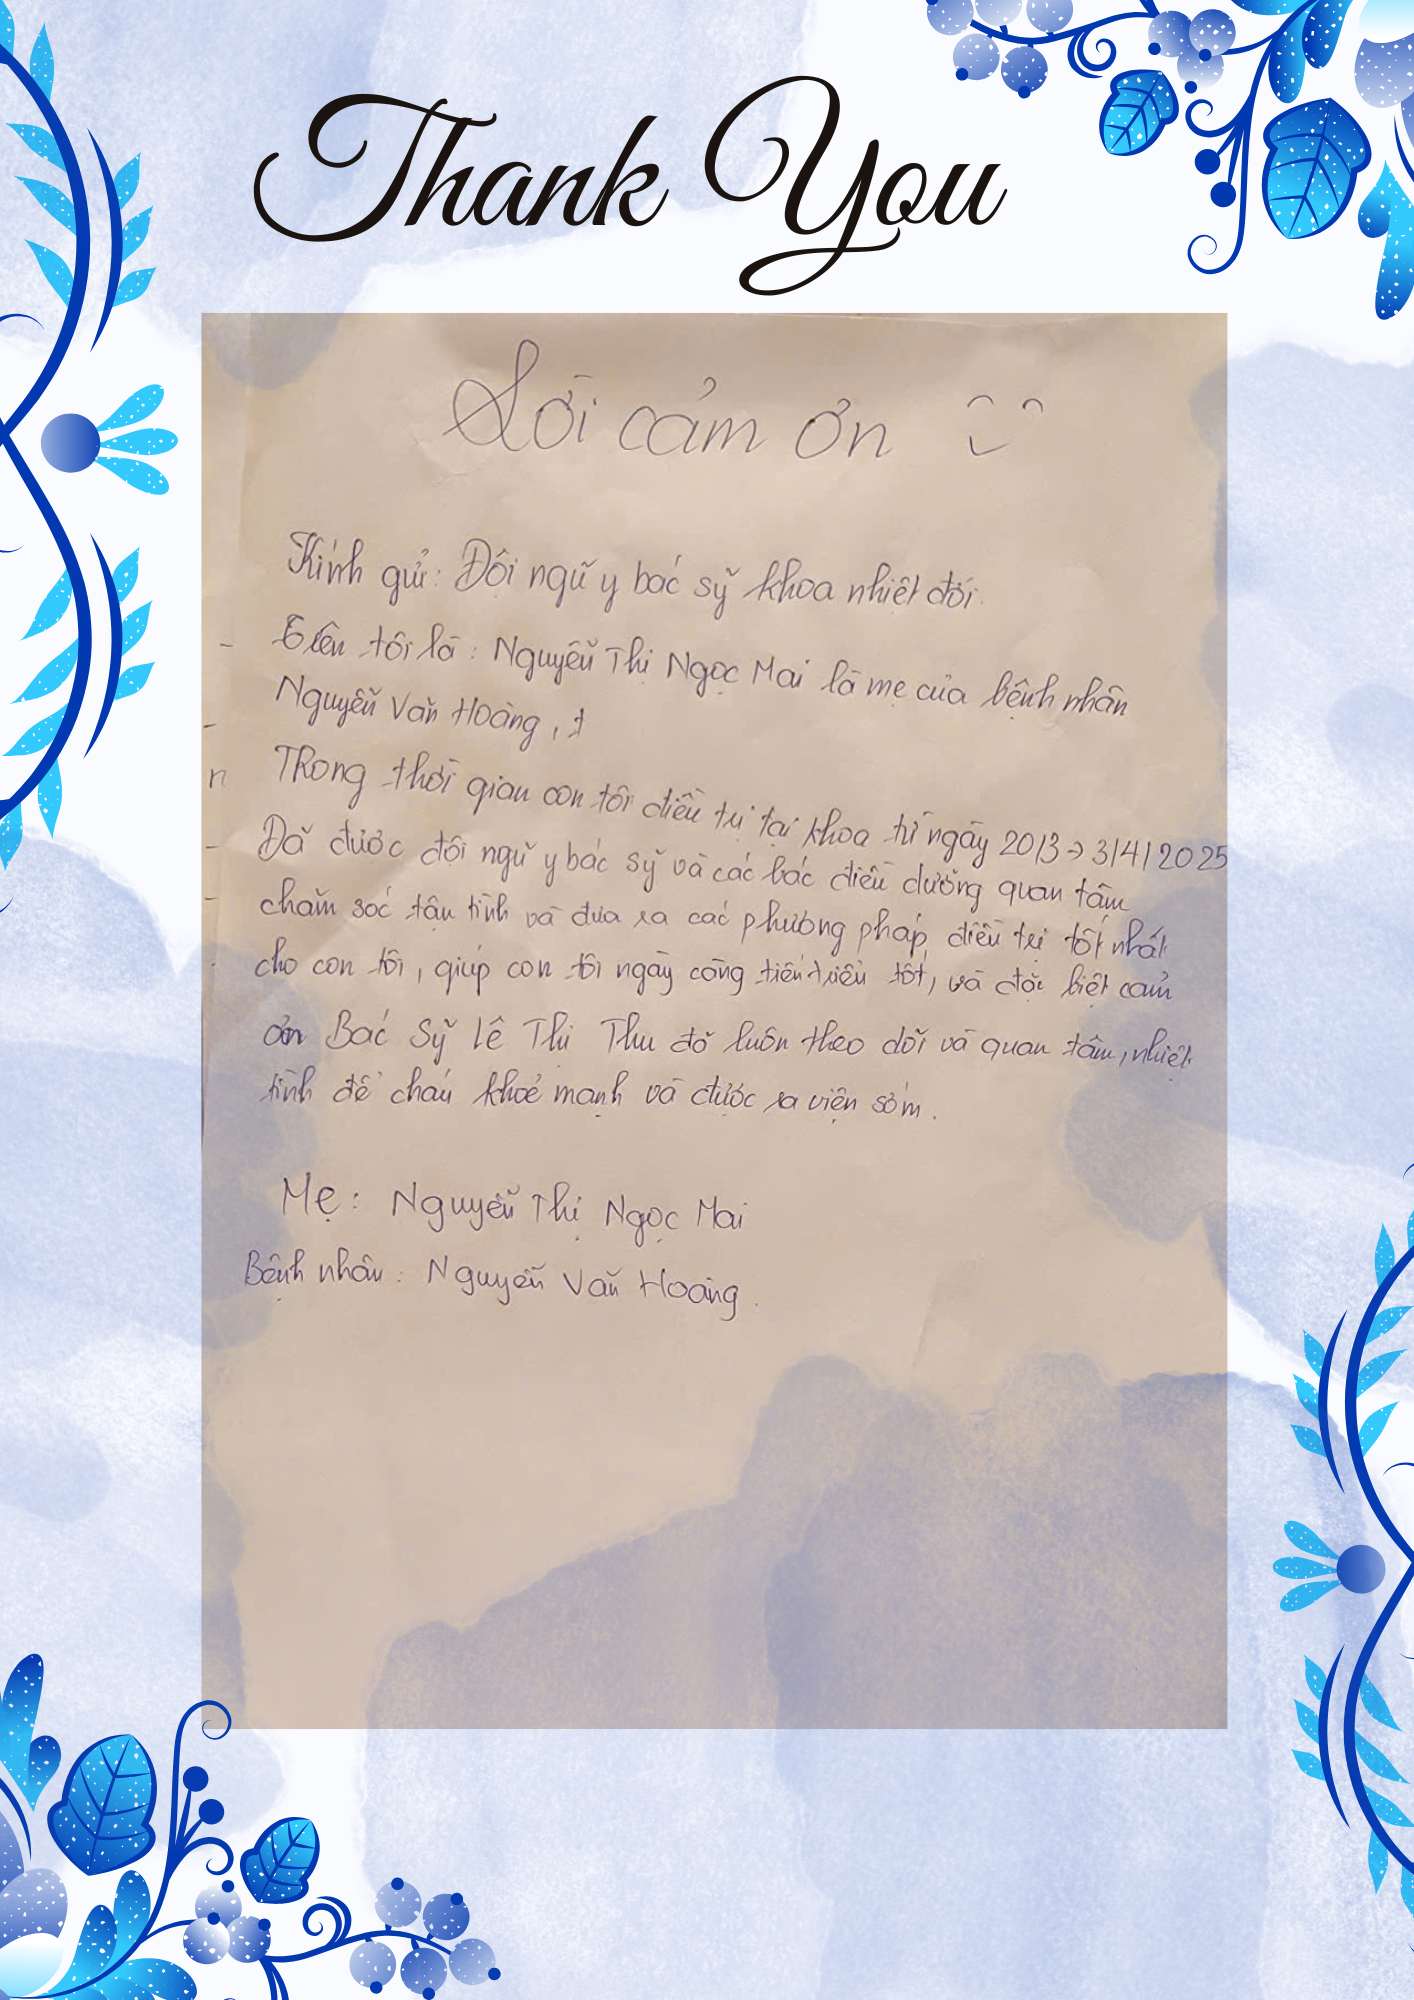 Thank You
Lời cảm ơn
Kính gửi: Đội ngũ y bác sỹ khoa nhiệt đới.
Tên tôi là: Nguyễn Thị Ngọc Mai là mẹ của bệnh nhân
Nguyễn Văn Hoàng,
Trong thời gian con tôi điều trị tại khoa từ ngày 20/3 → 3/4/2025
Đã được đội ngũ y bác sỹ và các bác điều dưỡng quan tâm
chăm sóc tận tình và đưa ra các phương pháp điều trị tốt nhất
cho con tôi, giúp con tôi ngày càng tiến triển tốt, và đặc biệt cảm
ơn Bác Sỹ Lê Thị Thu đã luôn theo dõi và quan tâm, nhiệt
tình để cháu khoẻ mạnh và được ra viện sớm.
Mẹ: Nguyễn Thị Ngọc Mai
Bệnh nhân: Nguyễn Văn Hoàng.